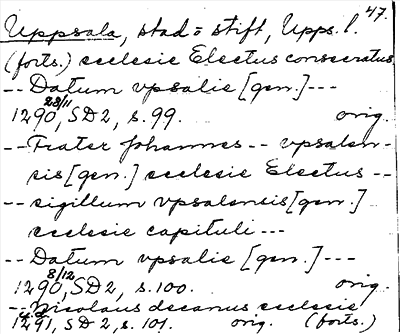 47.
Uppsala, stad = stift, Upps. l.
(forts.) ecclesie Electus consecratus
-- Datum vpsalie [gen.] ---
1290 23/11, SD 2, s. 99. orig.
-- Frater Johannes -- vpsalen-
sis [gen.] ecclesie Electus --
-- sigillum vpsalensis [gen.]
ecclesie capituli ---
-- Datum vpsalie [gen.] ---
1290 8/12, SD 2, s. 100. orig.
-- Nicolaus decanus ecclesie
1291, SD 2, s. 101. orig. (forts.)